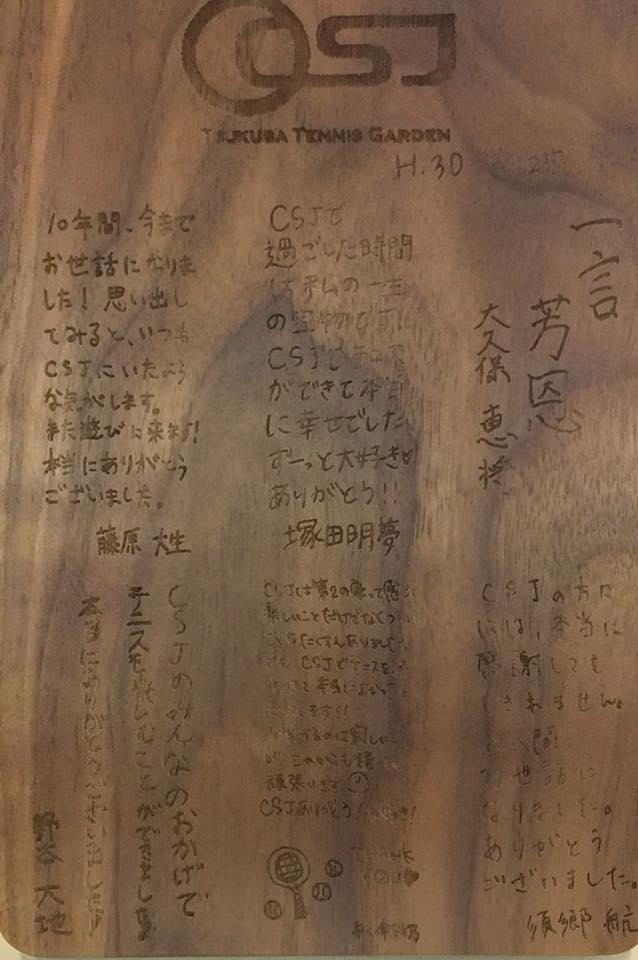 CSJ
TSUKUBA TENNIS GARDEN
H.30
一言芳恩
大久保 恵将
CSJで
過ごした時間
は私の一生
の宝物
CSJで
ができて本当
に幸せでした
ずーっと大好き♡
ありがとう!!
塚田明夢
10年間、今まで
お世話になりま
した! 思い出し
てみると、いつも
CSJにいたよう
な気がします。
また遊びに来ます!
本当にありがとう
ございました。
藤原 大生
CSJの方に
には、本当に
感謝しても
しきれません。
長い間
お世話に
なりました。
ありがとう
ございました。
須郷 航
CSJは第2の家って感じ
楽しいことだけでなくつらい
こともたくさんありました。
CSJでテニスを
本当によかった
思います!!
のは寂しい
が これからも
頑張ります
CSJありがとう!
THANK
YOU♥
CSJのみんなのおかげで
テニスを楽しむことができました
本当にありがとうございました!!
野本 大地